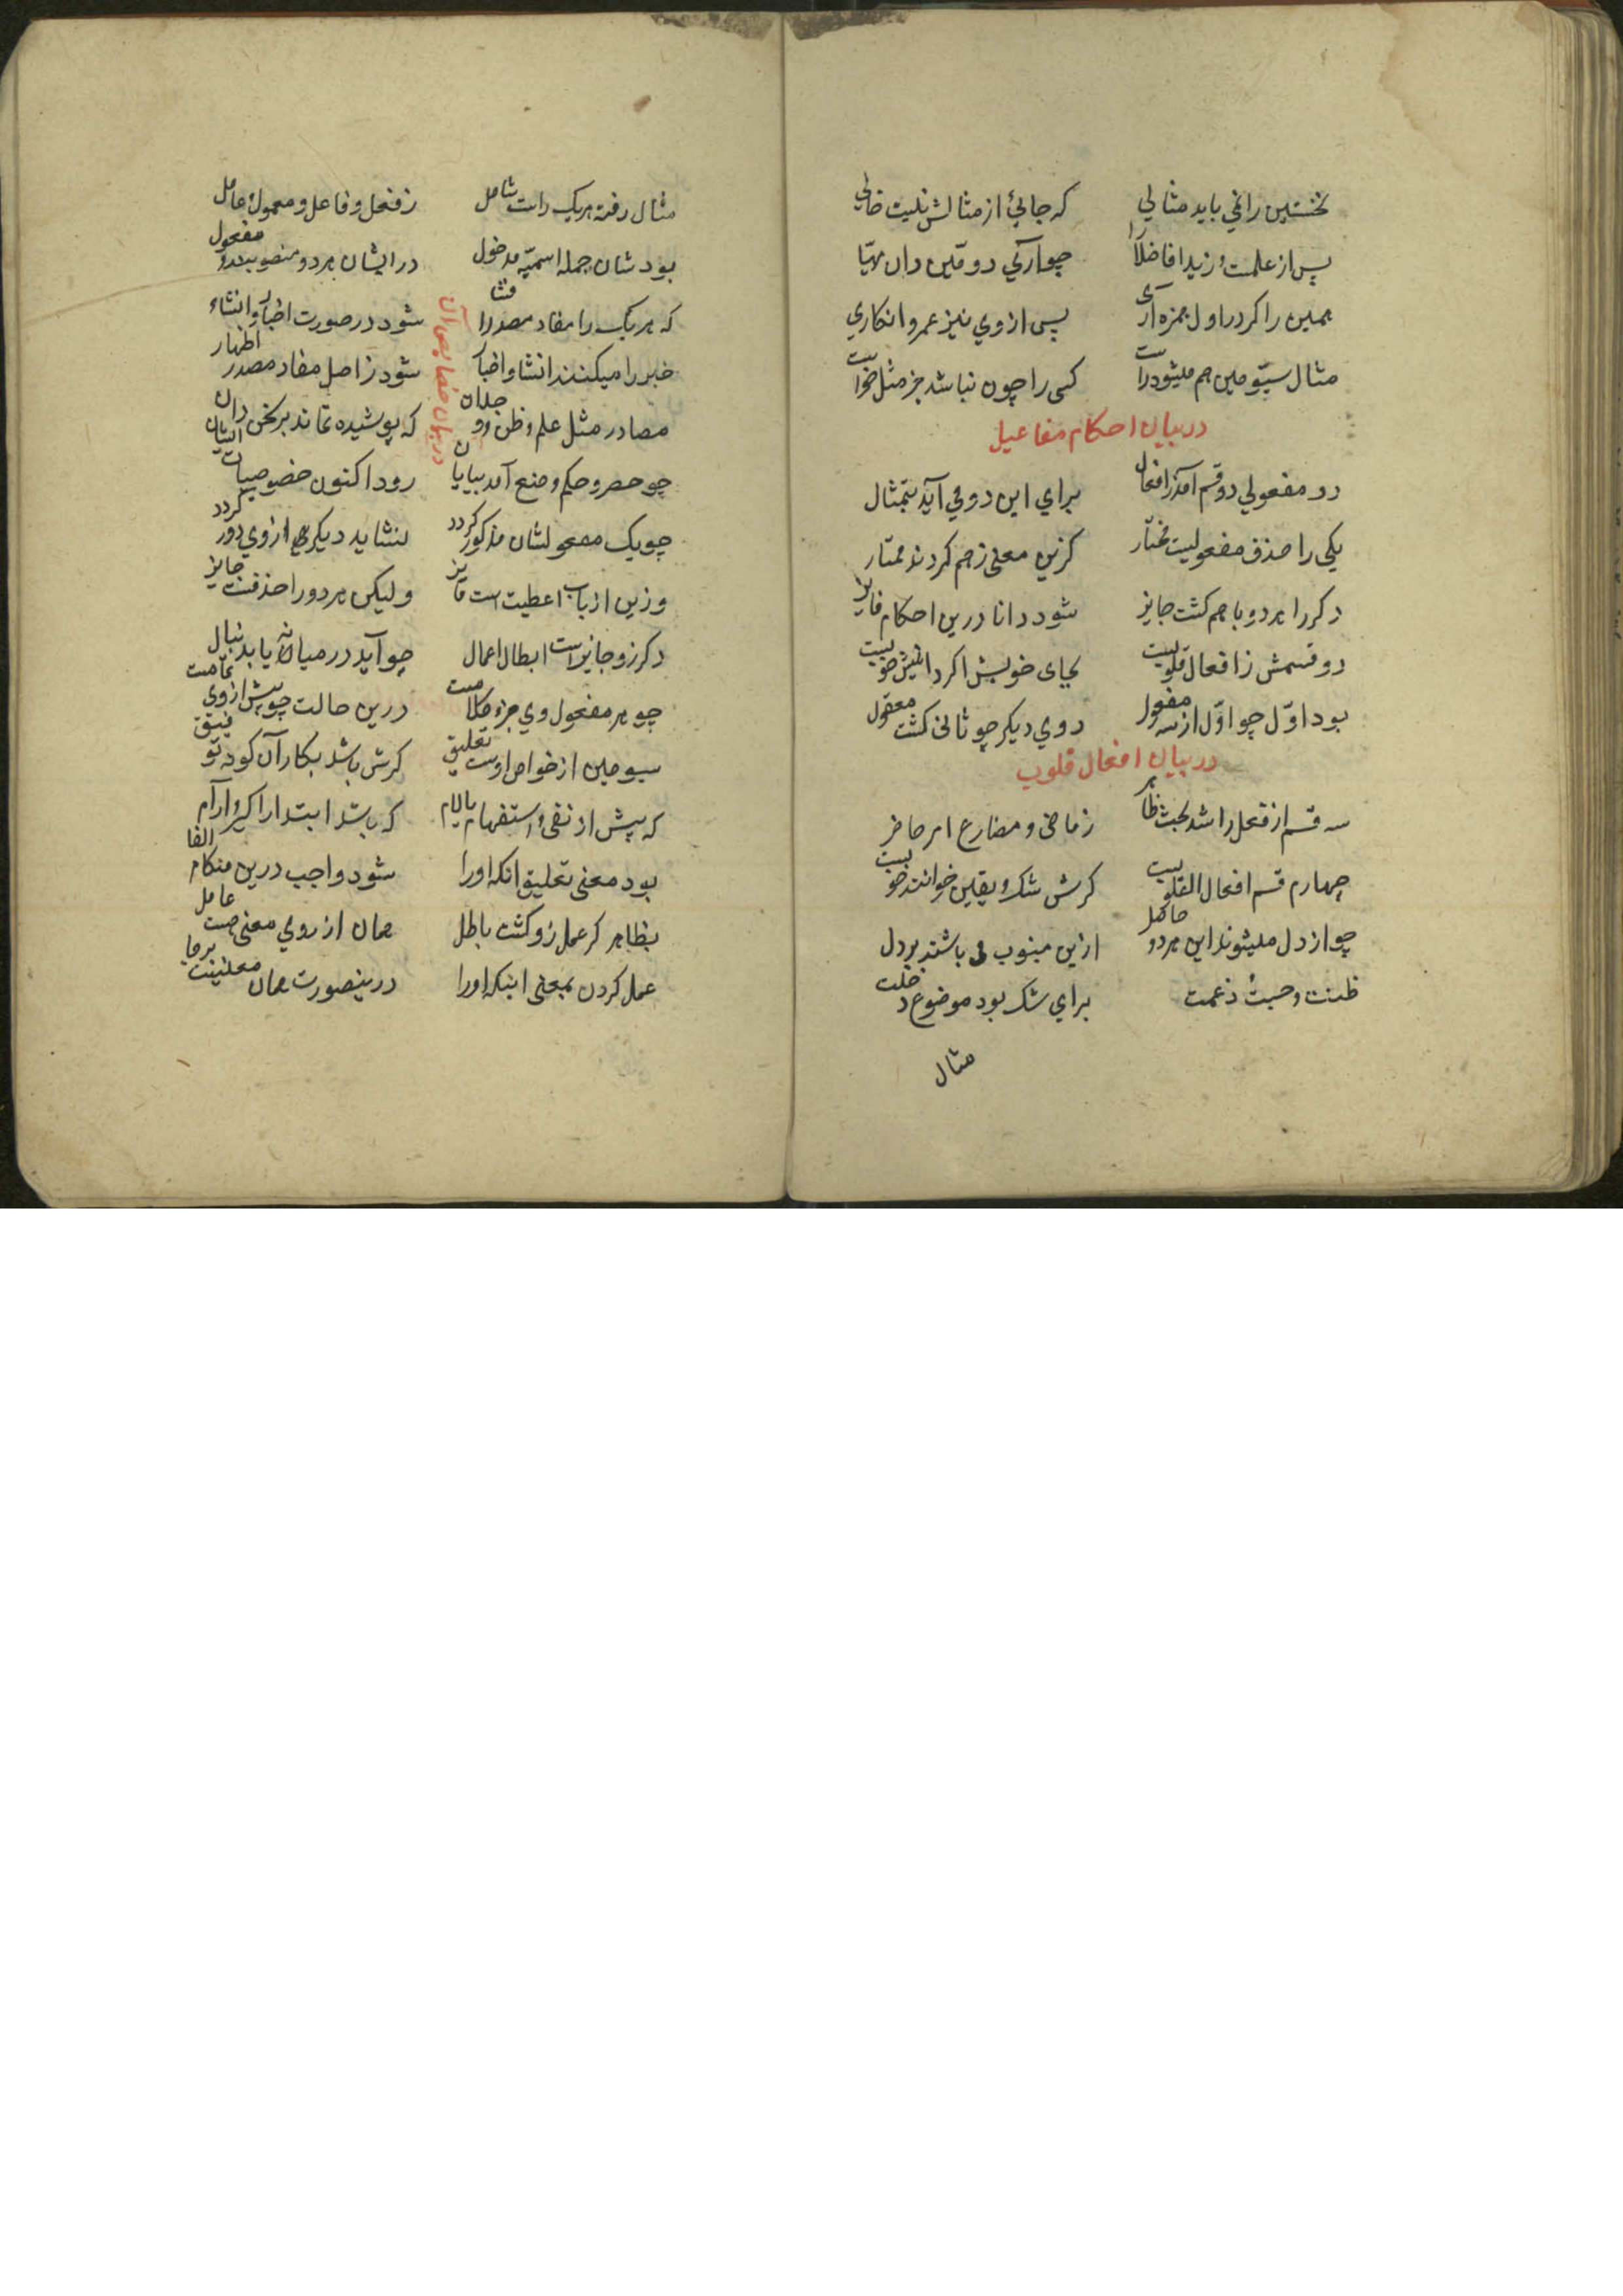 نخستین را نمی باید مثالی که جائی از مثالش نیست خالی
پس از علمت و زیدا فاضلا را چو آرئی دومین دان مهیا
همین را کر در اول همزه آری پس از وی نیز عمرو انکاری
مثال سیومین هم میشود راست کسی را چون نباشد جز مثل خواست
در بیان احکام مفاعیل
دو مفعولی دو قسم آمد ز افعال برای این دو می آید بتمثال
یکی را حذف مفعولیست مختار کزین معنی ز هم کردند ممتاز
دکر را هر دو با هم کشت جایز شود دانا درین احکام فایز
دو قسمش ز افعال قلوبیست بجای خویش اکر دانیش خوبیست
بود اول چو اول از سه مفعول دوی دیکر چو ثانی کشت معقول
در بیان افعال قلوب
سه قسم از فعل را شد بحث ظاهر ز ماضی و مضارع امر حاضر
چهارم قسم افعال القلوبیست کرش شک و یقین خوانند خوبیست
چو از دل میشوند این هر دو حاصل ازین منسوب می باشند بر دل
ظننت و حسبت زعمت برای شک بود موضوع خلت
مثال
مثال رفته هر یک راست شامل ز فعل و فاعل و معمول عامل
بود شان جمله اسمیه مدخول در ایشان هر دو منصوبند و مفعول
که هر یک را مفاد مصدر را منشا شود در صورت اخبار و انشاء
خبر را میکنند انشا و اخبار شود ز اصل مفاد مصدر اظهار
مصادر مثل علم و ظن و وجدان که پوشیده نماند بر سخن دان
در بیان خصایص آن
چو حصر و حکم و منع آمد بپایان رود اکنون خصوصیات ایشان
چو یک مفعولشان مذکور کردد نشاید دیکری از وی دور کردد
وزین از باب اعطیت است فایز ولیکن هر دو را حذفست جایز
دکر زو جایز است ابطال اعمال چو آید در میانه یا بدنبال
چو هر مفعول وی جزء کلامست درین حالت چو پیش از وی تمامست
سیومین از خواص اوست تعلیق کرش باشد بکار آن کونه توفیق
که پیش از نفی و استفهام یا لام که باشد ابتدا را کیرد آرام
بود معنی تعلیق آنکه او را شود واجب درین هنکام الغا
بظاهر کر عمل زو کشت باطل همان از روی معنی هست عامل
عمل کردن بمعنی اینکه او را درینصورت همان معنیست برجا